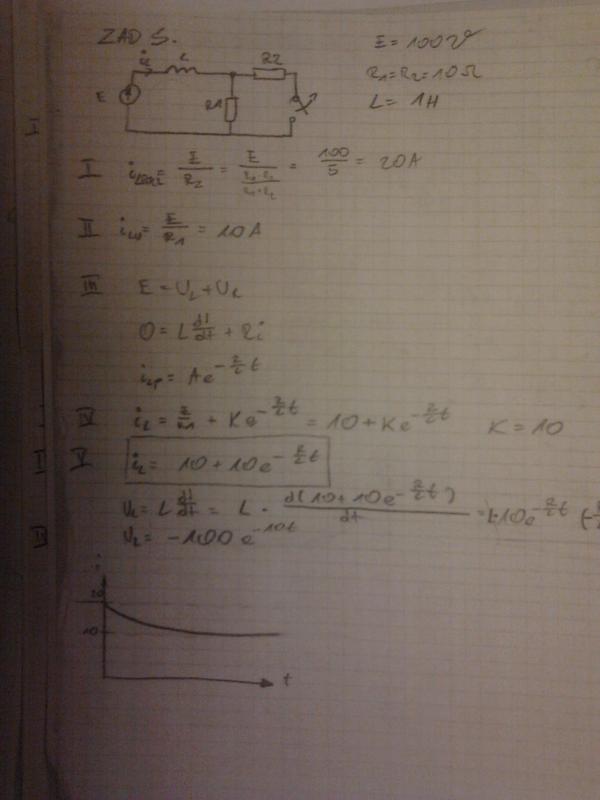 ZAD 5.
E = 100V
R1=R2=10Ω
L = 1H
iL
L
R2
E
R1
I iL(0-)= E/RZ = E/(R1·R2/(R1+R2)) = 100/5 = 20A
II iLu= E/R1 = 10A
III E = UL+UR
0 = L di/dt + Ri
iLp = Ae^(-R/L t)
IV iL = E/R1 + Ke^(-R/L t) = 10+Ke^(-R/L t) K = 10
V iL = 10+10e^(-R/L t)
UL = L di/dt = L · d(10+10e^(-R/L t))/dt = L·10e^(-R/L t)
UL = -100e^(-10t)
i
20
10
t